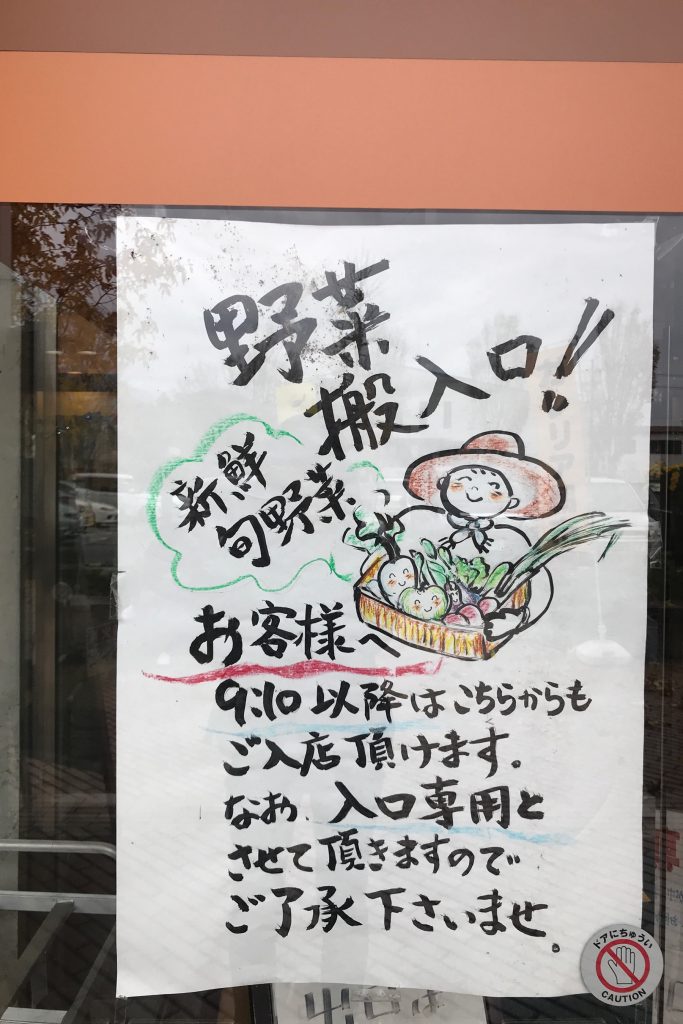 野菜
搬入口!!
新鮮
旬野菜
お客様へ
9:10以降はこちらからも
ご入店頂けます。
なお、入口専用と
させて頂きますので
ご了承下さいませ。
ドアにちゅうい
CAUTION